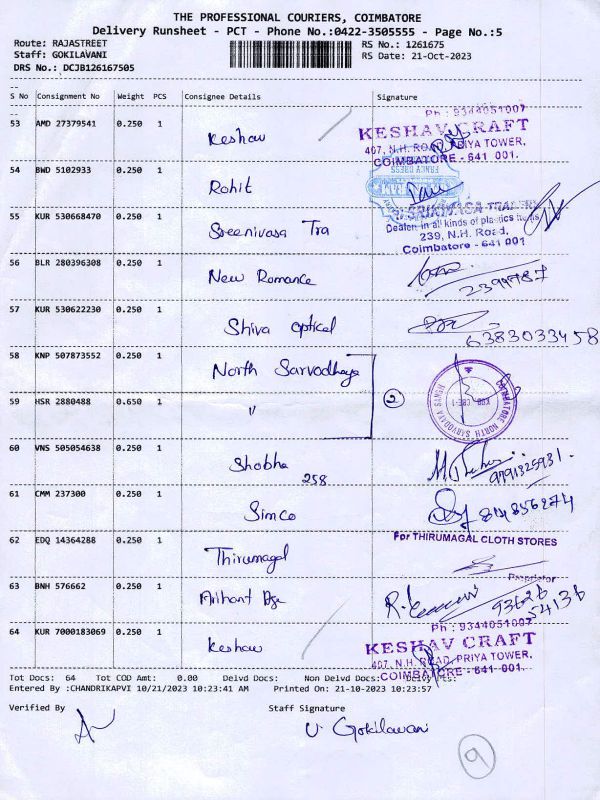 THE PROFESSIONAL COURIERS, COIMBATORE
Delivery Runsheet - PCT - Phone No.:0422-3505555 - Page No.:5
Route: RAJASTREET
Staff: GOKILAVANI
DRS No.: DCJB126167505
RS No.: 1261675
RS Date: 21-Oct-2023
S No Consignment No Weight PCS Consignee Details Signature
53 AMD 27379541 0.250 1 Keshav
Ph : 9344051007
KESHAV CRAFT
407, N.H. ROAD, PRIYA TOWER,
COIMBATORE - 641 001.
54 BWD 5102933 0.250 1 Rohit
FANCY DRESS
55 KUR 530668470 0.250 1 Sreenivasa Tra
Dealers in all kinds of plastics items
239, N.H. Road,
Coimbatore - 641 001
56 BLR 280396308 0.250 1 New Romance
2399787
57 KUR 530622230 0.250 1 Shiva optical
6383033458
58 KNP 507873552 0.250 1 North Sarvodhaya
59 HSR 2880488 0.650 1 "
2
COIMBATORE NORTH SARVODAYA SANGH
60 VNS 505054638 0.250 1 Shobha
258
61 CMM 237300 0.250 1 Simco
62 EDQ 14364288 0.250 1 Thirumagal
For THIRUMAGAL CLOTH STORES
Proprietor
63 BNH 576662 0.250 1 Arihant
93626
54136
64 KUR 7000183069 0.250 1 Keshav
Ph : 9344051007
KESHAV CRAFT
407, N.H. ROAD, PRIYA TOWER,
COIMBATORE - 641 001.
Tot Docs: 64 Tot COD Amt: 0.00 Delvd Docs: Non Delvd Docs: Delvd Pcs:
Entered By :CHANDRIKAPVI 10/21/2023 10:23:41 AM Printed On: 21-10-2023 10:23:57
Verified By Staff Signature
V. Gokilavani
9